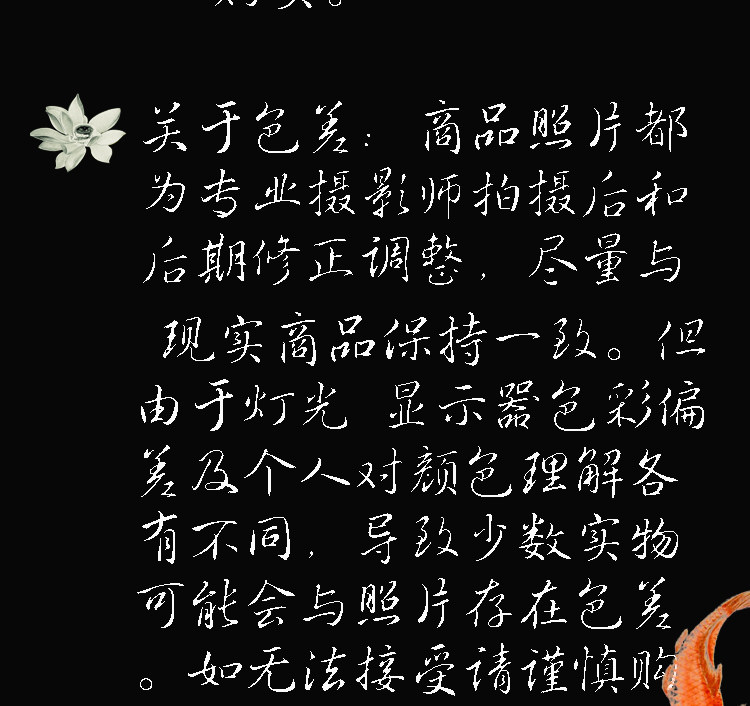 关于色差：商品照片都
为专业摄影师拍摄后和
后期修正调整，尽量与
现实商品保持一致。但
由于灯光 显示器色彩偏
差及个人对颜色理解各
有不同，导致少数实物
可能会与照片存在色差
。如无法接受请谨慎购